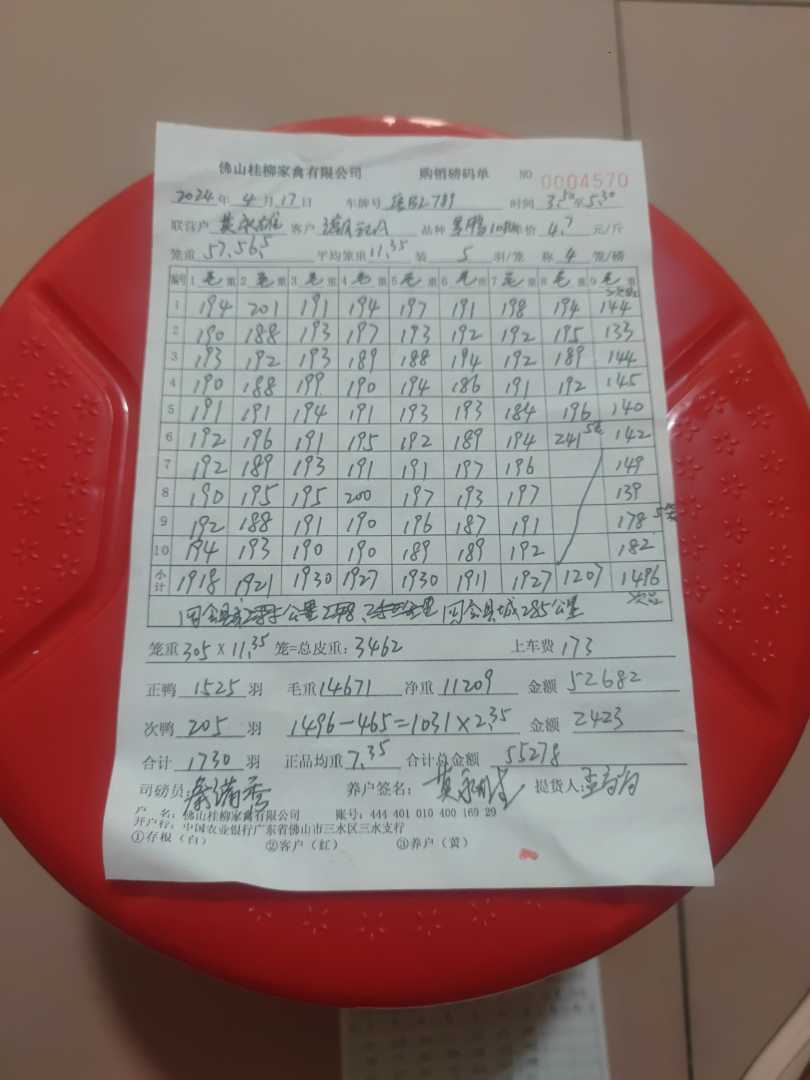 佛山桂柳家禽有限公司 购销磅码单 NO 0004570
2024 年 4 月 17 日 车牌号 789 时间 3.50 至 5.30
联营户 黄永雄 客户 品种 价 4.7 元/斤
笼重 57.56.5 平均笼重 11.35 装 5 羽/笼 称 4 笼/磅
编号 1 毛重 2 毛重 3 毛重 4 毛重 5 毛重 6 毛重 7 毛重 8 毛重 9 毛重
1 194 201 191 194 197 191 198 194 144
2 190 188 193 197 193 192 192 195 133
3 193 192 193 189 188 194 192 189 144
4 190 188 199 190 194 186 191 192 145
5 191 191 194 191 193 193 184 196 140
6 192 196 191 195 192 189 194 241 142
7 192 189 193 191 191 197 196 149
8 190 195 195 200 197 193 197 139
9 192 188 191 190 196 187 191 178
10 194 193 190 190 189 189 192 182
小计 1918 1921 1930 1927 1930 1911 1927 1207 1496
次品
回会县城285公里
笼重 305 X 11.35 笼=总皮重: 3462 上车费 173
正鸭 1525 羽 毛重 14671 净重 11209 金额 52682
次鸭 205 羽 1496-465=1031×2.35 金额 2423
合计 1730 羽 正品均重 7.35 合计总金额 55278
司磅员: 养户签名: 提货人:
户 名: 佛山桂柳家禽有限公司 账号: 444 401 010 400 169 29
开户行: 中国农业银行广东省佛山市三水区三水支行
①存根(白) ②客户(红) ③养户(黄)